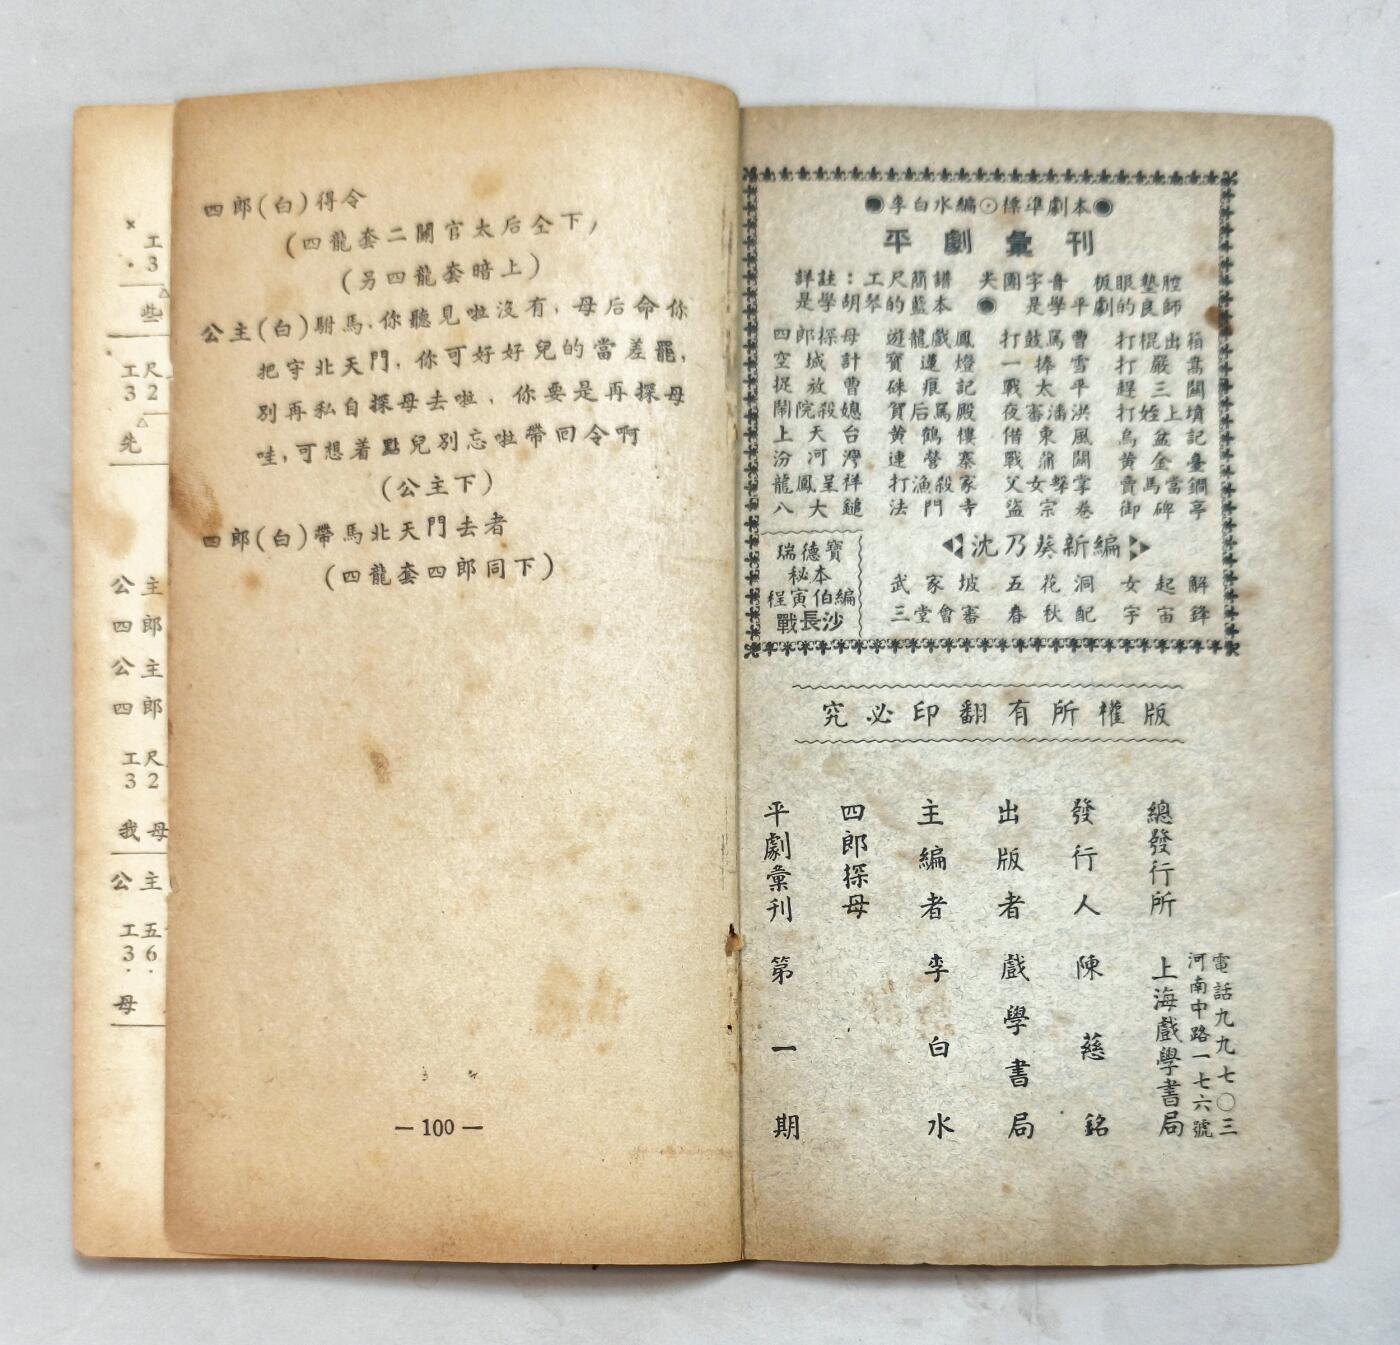 工
3
些
工尺
3 2
先
公主
四郎
公主
四郎
工尺
3 2
我母
公主
工五
3 6
母
四郎(白)得令
(四龍套二關官太后仝下,
(另四龍套暗上)
公主(白)駙馬,你聽見啦沒有,母后命你
把守北天門,你可好好兒的當差罷,
別再私自探母去啦,你要是再探母
哇,可想着點兒別忘啦帶回令啊
(公主下)
四郎(白)帶馬北天門去者
(四龍套四郎同下)
— 100 —
李白水編⊙標準劇本
平劇彙刊
詳註:工尺簡譜 尖團字音 板眼墊腔
是學胡琴的藍本 ● 是學平劇的良師
四郎探母 遊龍戲鳳 打鼓罵曹 打棍出箱
空城計 寶蓮燈 一捧雪 打嚴嵩
捉放曹 硃痕記 戰太平 趕三關
鬧院殺媳 賀后罵殿 夜審潘洪 打姪上墳
上天台 黃鶴樓 借東風 烏盆記
汾河灣 連營寨 戰蒲關 黄金臺
龍鳳呈祥 打漁殺家 父女擊掌 賣馬當鐧
八大鎚 法門寺 盜宗卷 御碑亭
瑞德寶
秘本
程寅伯編
戰長沙
沈乃葵新編
武家坡 五花洞 女起解
三堂會審 春秋配 宇宙鋒
究必印翻有所權版
總發行所 上海戲學書局
河南中路一七六號
電話九九七〇三
發行人 陳慈銘
出版者 戲學書局
主編者 李白水
四郎探母
平劇彙刊 第一期